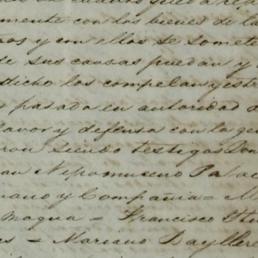 mente con los bienes de la
os y con ellos se somete
de sus causas puedan y
dicho los compelan y estre
pasada en autoridad d
favor y defensa con la gen
ron siendo testigos Don
an Nepomuseno Pala
ano y Compañia =
moqua = Francisco
es = Mariano Dayller